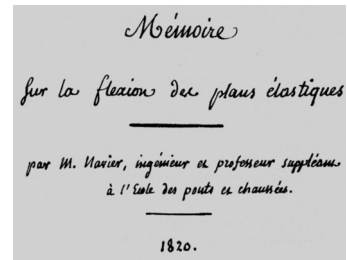 Mémoire
sur la flexion des plans élastiques
par M. Navier, ingénieur et professeur suppléant
à l'Ecole des ponts et chaussées.
1820.